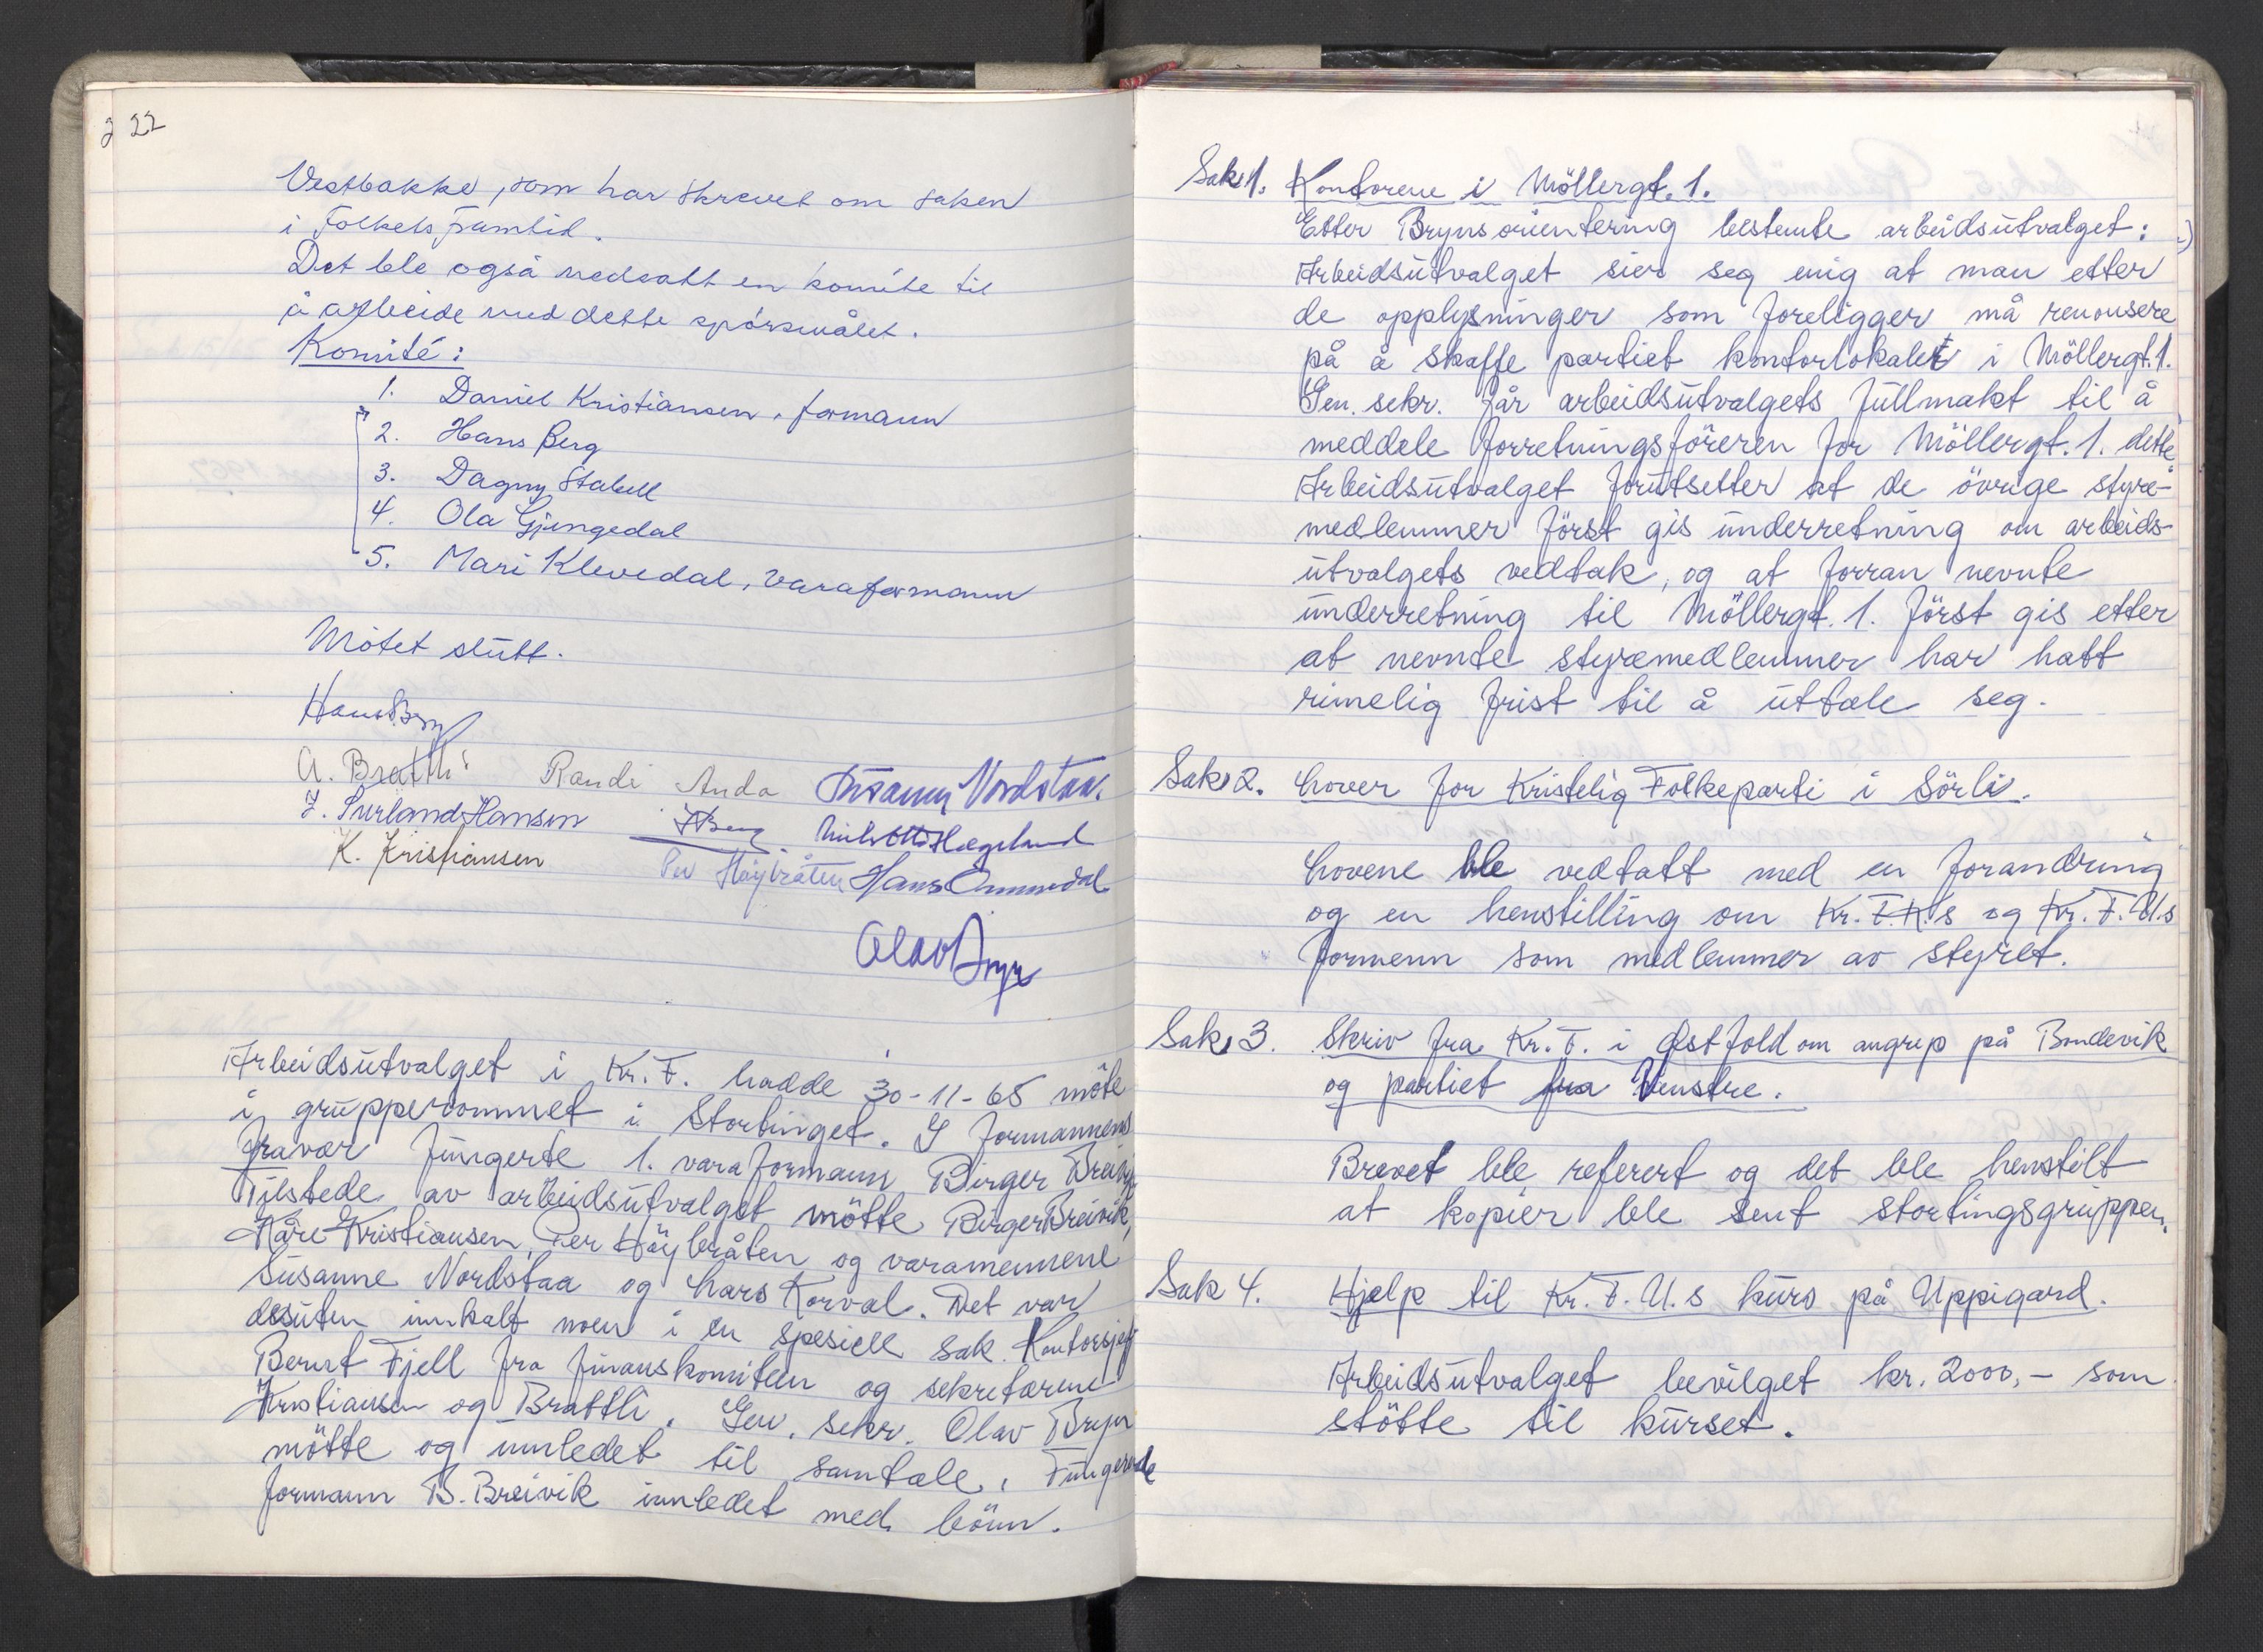 22
Vestbakke, som har skrevet om saken
i Folkets Framtid.
Det ble også nedsatt en komite til
å arbeide med dette spórsmålet.
Komité:
1. Daniel Kristiansen, formann
2. Hans Berg
3. Dagny Stabell
4. Ola Gjengedal
5. Mari Klevedal, varaformann
Mötet slutt.
Hans Berg
A. Brattli Randi Anda Susanne Nordstaa.
J. Surland Hansen HBerg Nils Otto Hægeland
K. Kristiansen Per Höybråten Hans Ommedal
Olav Bryn
Arbeidsutvalget i Kr. F. hadde 30-11-65 möte
i grupperommet i Stortinget. I formannens
fravær fungerte 1. varaformann Birger Breivik
Tilstede av arbeidsutvalget mötte Birger Breivik,
Kåre Kristiansen, Per Höybråten og varamennene
Susanne Nordstaa og Lars Korval. Det var
dessuten innkalt noen i en spesiell sak. Kontorsjef
Bernt Fjell fra finanskomiteen og sekretærene
Kristiansen og Brattli. Gen. sekr. Olav Bryn
mötte og innledet til samtale. Fungerende
formann B. Breivik innledet med bönn.
Sak 1. Kontorene i Möllergt. 1.
Etter Bryns orientering bestemte arbeidsutvalget:
Arbeidsutvalget sier seg enig at man etter
de opplysninger som foreligger må renonsere
på å skaffe partiet kontorlokalet i Möllergt. 1.
Gen. sekr. får arbeidsutvalgets fullmakt til å
meddele forretningsföreren for Möllergt. 1. dette.
Arbeidsutvalget forutsetter at de övrige styre-
medlemmer först gis underretning om arbeids-
utvalgets vedtak, og at forran nevnte
underretning til Möllergt. 1. först gis etter
at nevnte styremedlemmer har hatt
rimelig frist til å uttale seg.
Sak 2. Lover for Kristelig Folkeparti i Sörli.
Lovene ble vedtatt med en forandring
og en henstilling om Kr. F. K.s og Kr. F. U.s
formenn som medlemmer av styret.
Sak 3. Skriv fra Kr. F. i Østfold om angrep på Bondevik
og partiet fra Venstre.
Brevet ble referert og det ble henstilt
at kopier ble sent stortingsgruppen.
Sak 4. Hjelp til Kr. F. U.s kurs på Uppigard.
Arbeidsutvalget bevilget kr. 2000,- som
stötte til kurset.